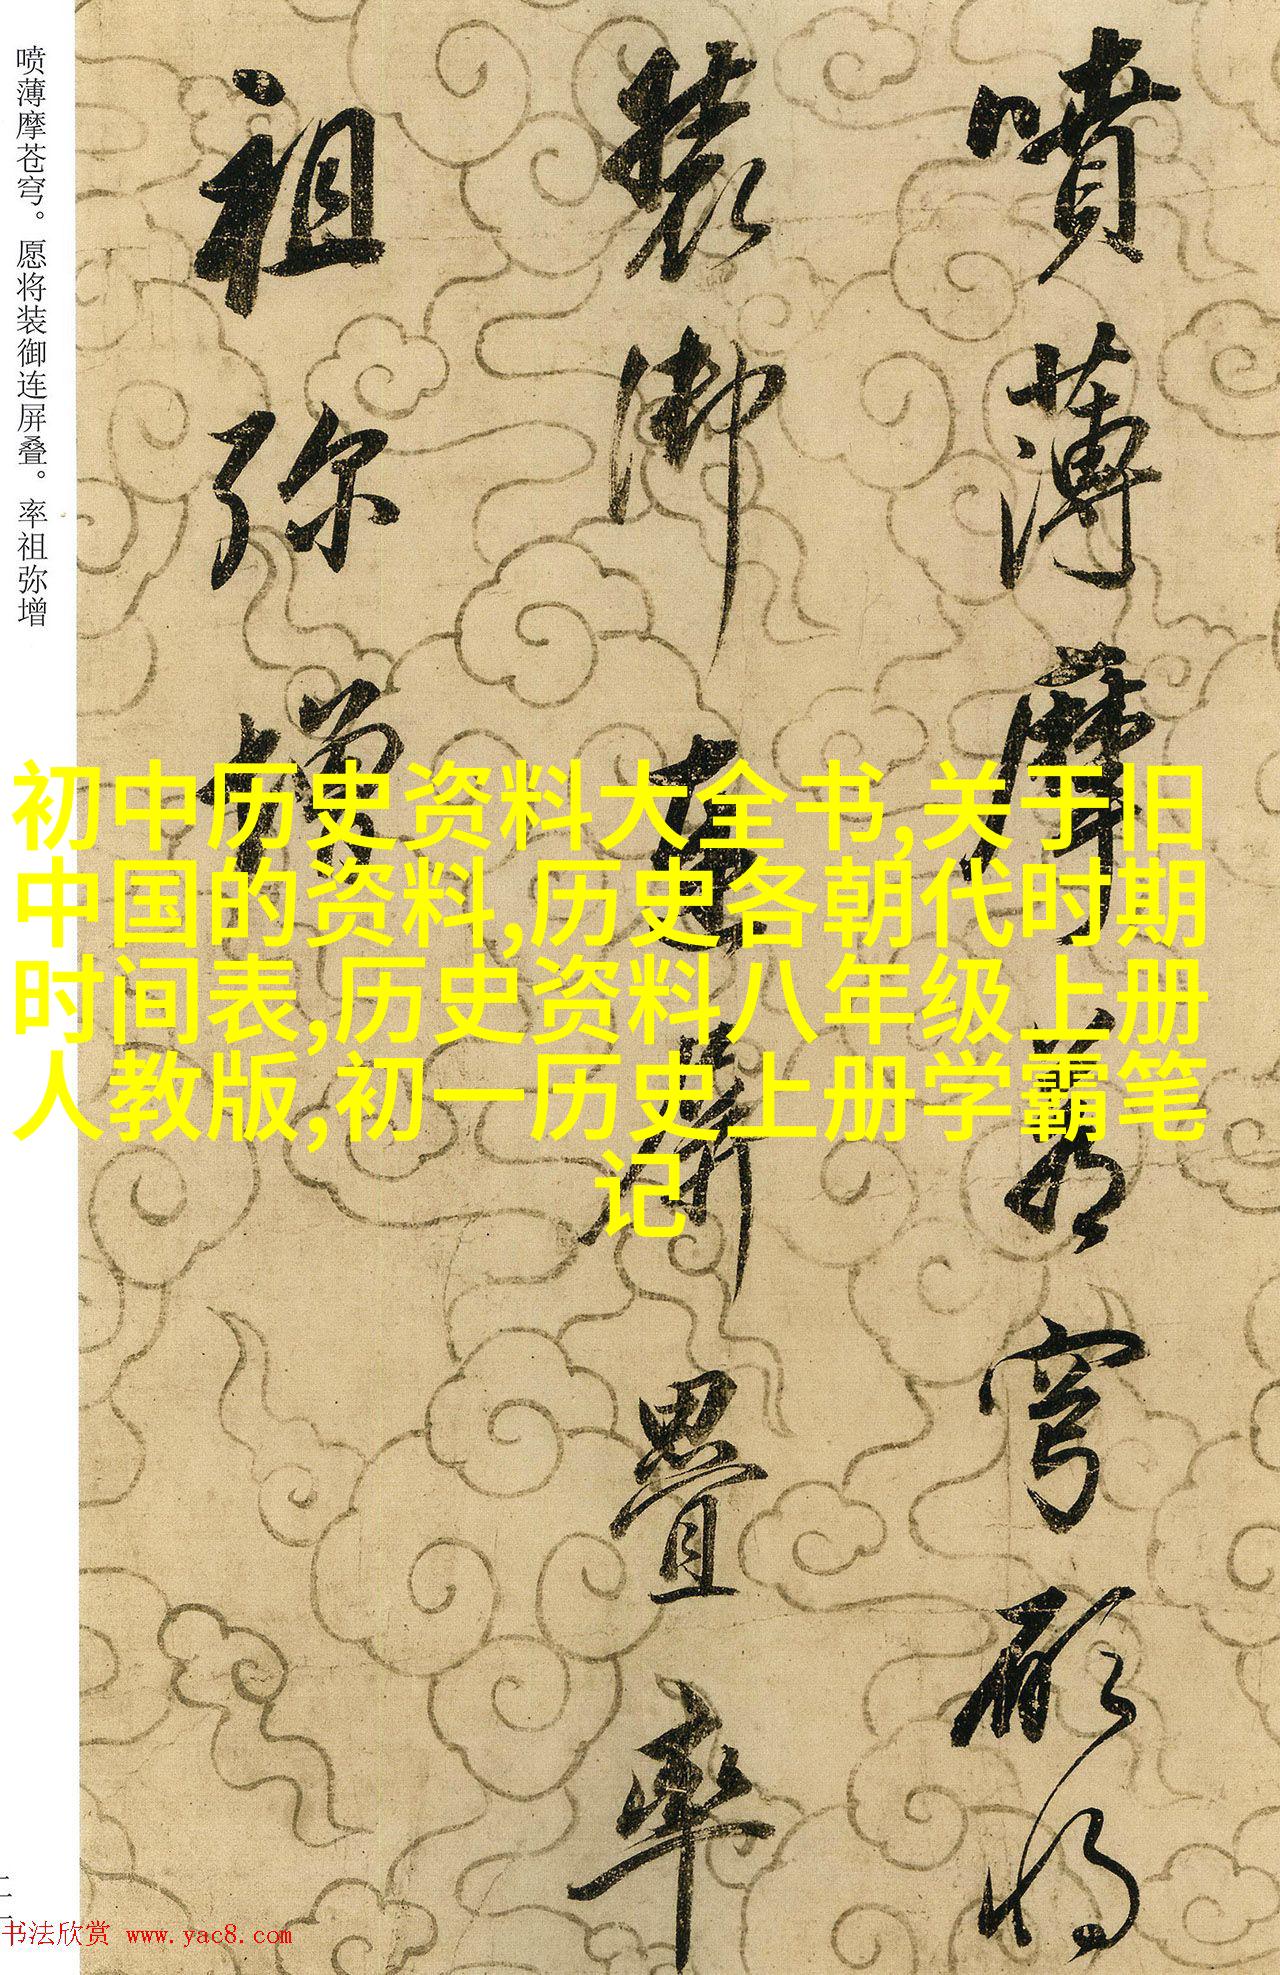 喷薄摩苍穹。愿将装御连屏叠。率祖弥增
噴薄摩蒼穹願將
裝御連屏疊率
祖弥增
初中历史资料大全书,关于旧
中国的资料,历史各朝代时期
时间表,历史资料八年级上册
人教版,初一历史上册学霸笔
记
书法欣赏 www.yac8.com